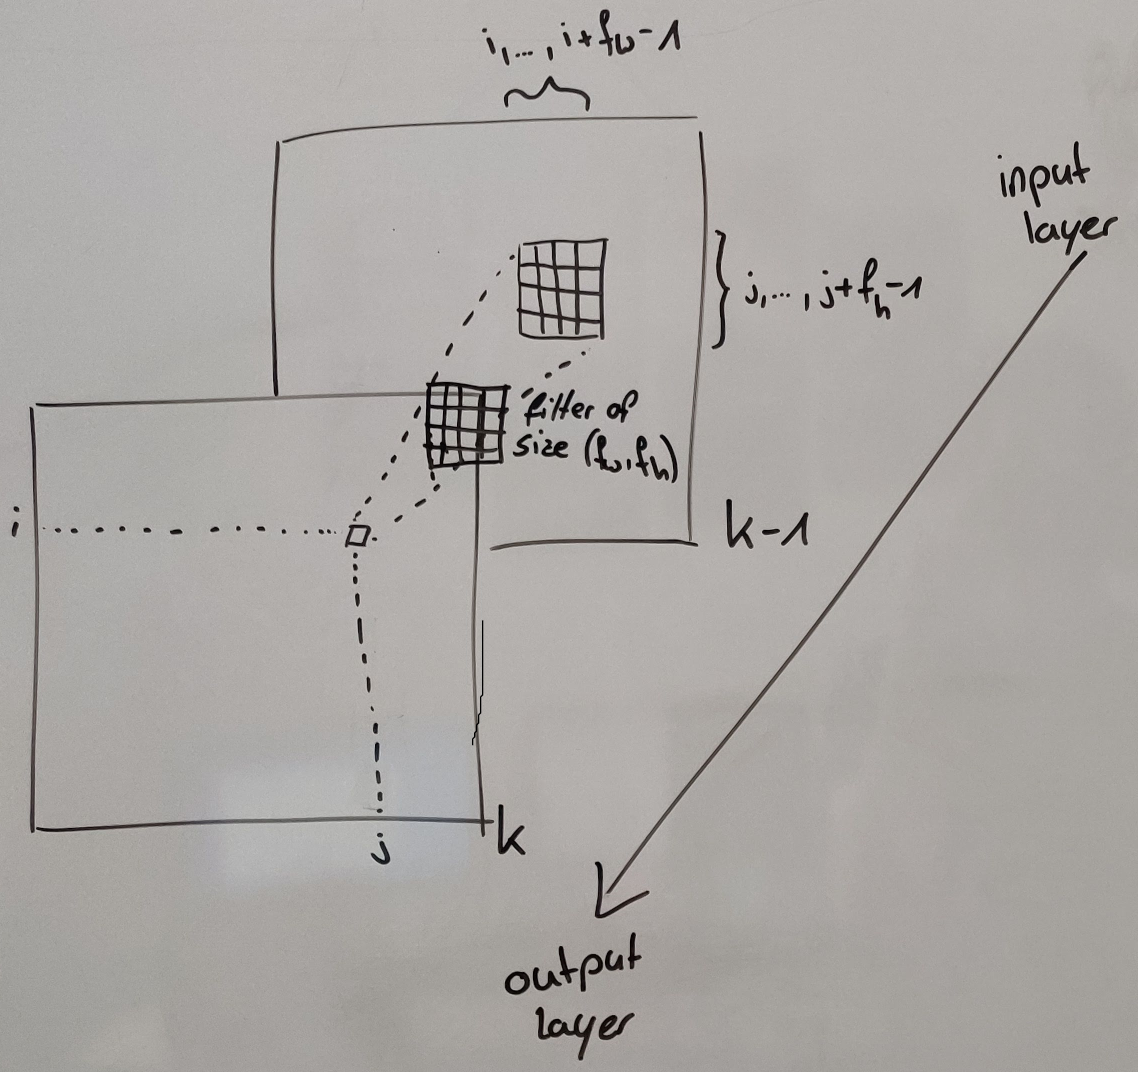 i,...,i+fw-1
input
layer
j,...,j+fh-1
filter of
size (fw,fh)
i
k-1
k
j
output
layer